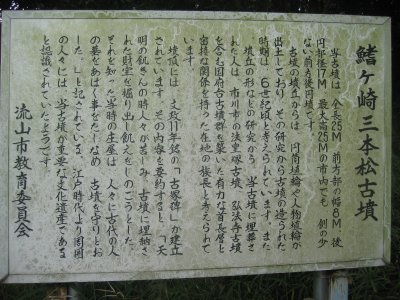 鰭ヶ崎三本松古墳
当古墳は、全長25M、前方部の幅8M、後
円部径17M、最大高2.5Mの市内でも、例の少
ない前方後円墳です。
古墳の墳丘からは、円筒埴輪や人物埴輪が
出土しており、その研究から古墳の造られた
時期は、6世紀頃と考えられています。また
墳丘の形などの研究から、当古墳に埋葬さ
れた人は、市川市の法皇塚古墳、弘法寺古墳
を含む国府台古墳群を築いた有力な首長層と
密接な関係を持った在地の族長と考えられて
います。
墳頂には、文政11年銘の「古塚碑」が建立
されています。その内容を要約すると、「天
明の飢きんの時人々が苦しみ、古墳に埋納さ
れた財宝を掘り出し飢えをしのごうとした。
それを知った当時の庄屋は、人々に古代の人
の墓をあばく事をたしなめ、古墳を守りとお
した。」と記されている。江戸時代より周囲
の人々には、当古墳が重要な文化遺産である
と認識されていたようです。
流山市教育委員会